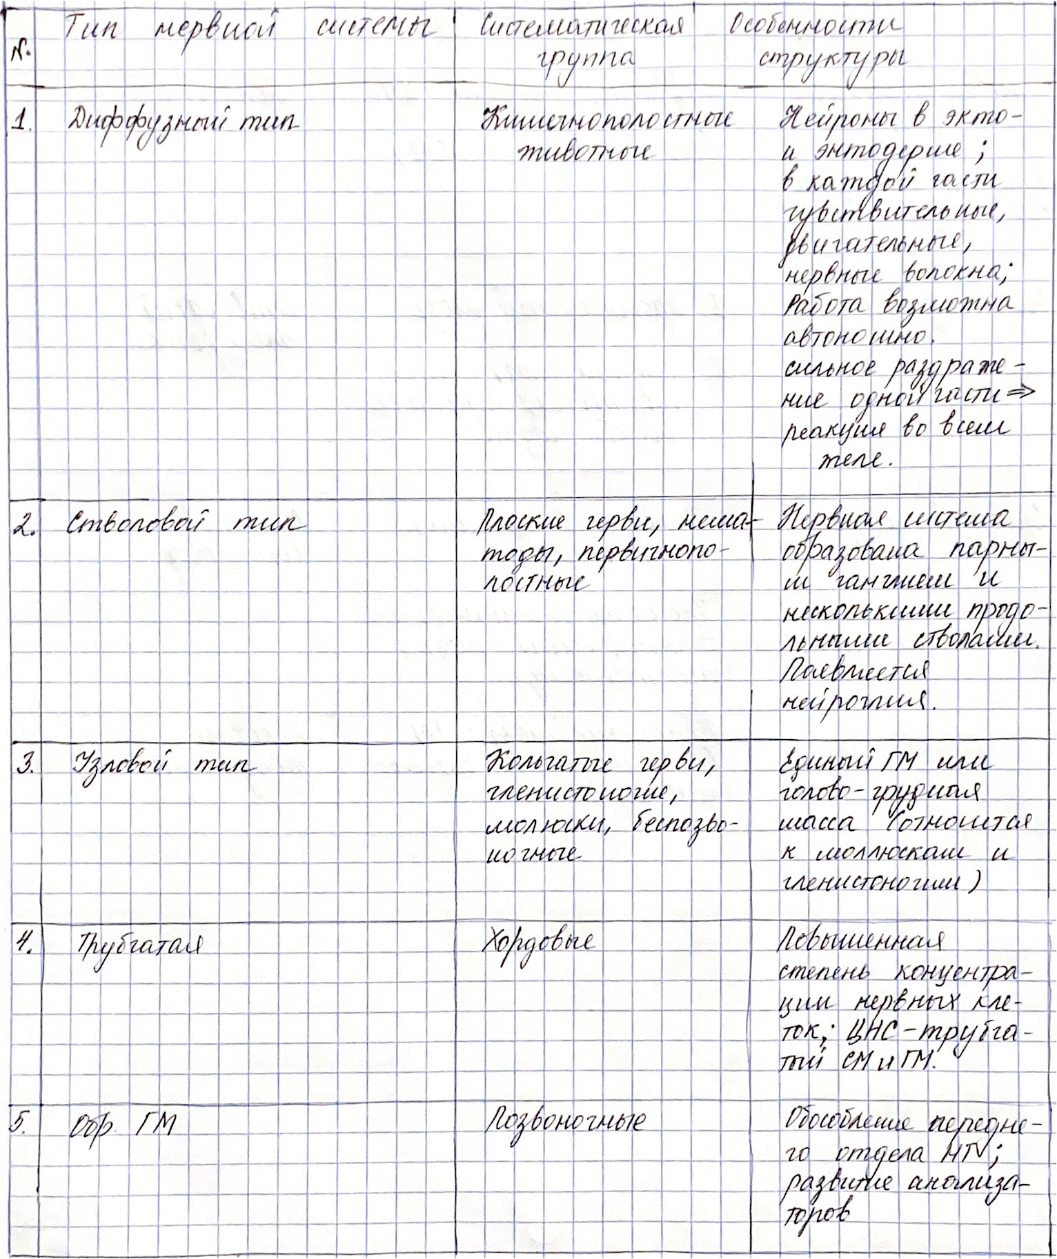 №.
Тип нервной системы
Систематическая группа
Особенности структуры
1.
Диффузный тип
Кишечнополостные
животные
Нейроны в экто-
и энтодерме;
в каждой части
чувствительные,
двигательные,
нервные волокна;
Работа возможна
автономно.
сильное раздраже-
ние одной части ⇒
реакция во всем
теле.
2.
Стволовой тип
Плоские черви, нема-
тоды, первичнопо-
лостные
Нервная система
образована парны-
м ганглием и
несколькими продо-
льными стволами.
Появляется
нейроглия.
3.
Узловой тип
Кольчатые черви,
членистоногие,
молюски, беспозво-
ночные
Единый ГМ или
голово-грудная
масса (относится
к моллюскам и
членистоногим)
4.
Трубчатая
Хордовые
Повышенная
степень концентра-
ции нервных кле-
ток; ЦНС-трубча-
тый СМ и ГМ.
5.
Обр. ГМ
Позвоночные
Обособление передне-
го отдела НТ;
развитие анализа-
торов